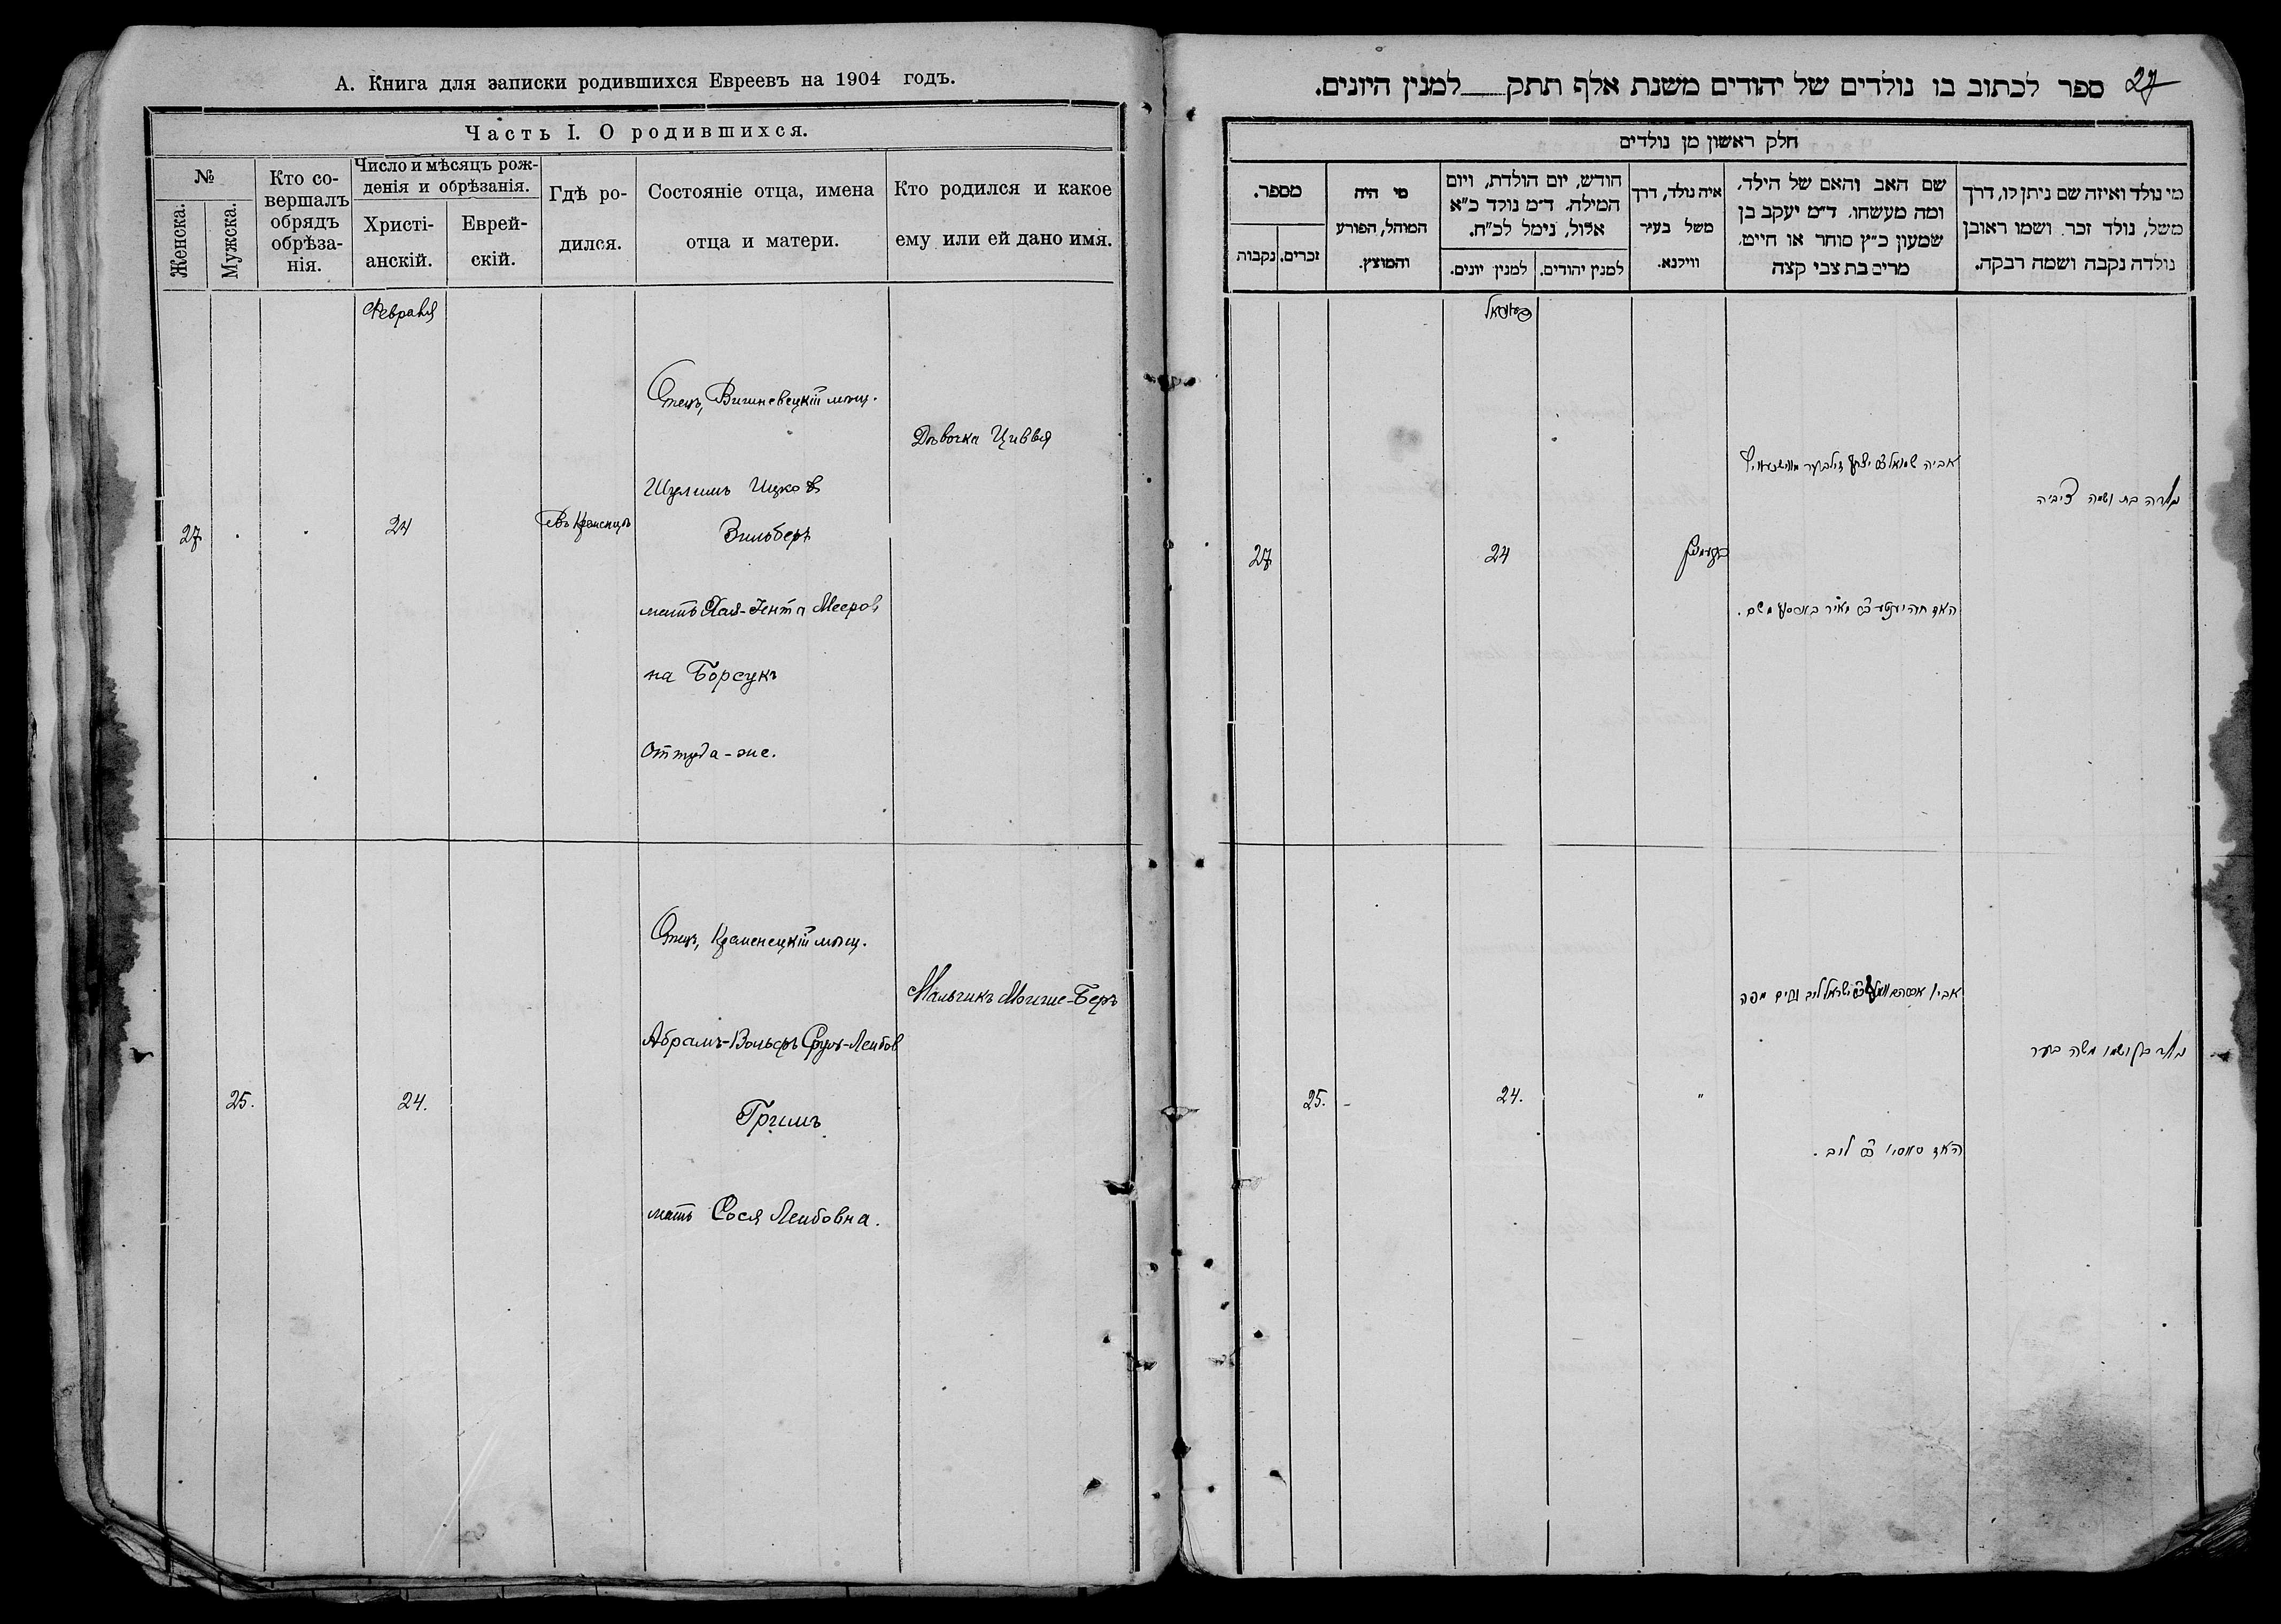 А. Книга для записки родившихся Евреевъ на 1904 годъ.
Часть I. О родившихся.
№
Женска.
Мужска.
Кто со-
вершалъ
обрядъ
обрѣза-
нія.
Число и мѣсяцъ рож-
денія и обрѣзанія.
Христі-
анскій.
Еврей-
скій.
Гдѣ ро-
дился.
Состояніе отца, имена
отца и матери.
Кто родился и какое
ему или ей дано имя.
Февраля
27
24
Въ Кременцѣ
Отецъ, Вишневецкій мѣщ.
Шулимъ Ицков
Зильберъ
мать Хая-Јента Мееров
на Борсукъ
Оттуда-же.
Дѣвочка Цивья
25.
24.
Отецъ, Кременецкій мѣщ.
Абрамъ-Вольфъ Сруль-Лейбов
Гримъ
мать Сося Лейбовна.
Мальчикъ Мойше-Беръ
27
ספר לכתוב בו נולדים של יהודים משנת אלף תתק למנין היונים.
חלק ראשון מן נולדים
מי נולד ואיזה שם ניתן לו, דרך
משל, נולד זכר, ושמו ראובן
נולדה נקבה ושמה רבקה.
שם האב והאם של הילד,
ומה מעשהו, ד״מ יעקב בן
שמעון כ״ץ סוחר או חייט,
מרים בת צבי קצה
איה נולד, דרך
משל בעיר
ווילנא.
חודש, יום הולדת, ויום
המילה, ד״מ נולד כ״א
אלול, נימל לכ״ח.
למנין יהודים.
למנין יונים.
מי היה
המוהל, הפורע
והמוצץ.
מספר.
זכרים.
נקבות
נולדה בת ושמה ציביה
אביה
האם חיה יענטע מאיר משם.
24
27
נולד בן ושמו משה בער
אביו ישראל ליב מפה
האם ליב.
"
24.
25.